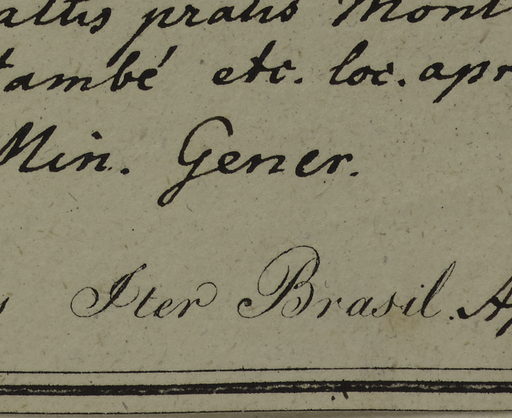 altis pratis Mont
també etc. loc. apr
Min. Gener.
Iter Brasil. Ap